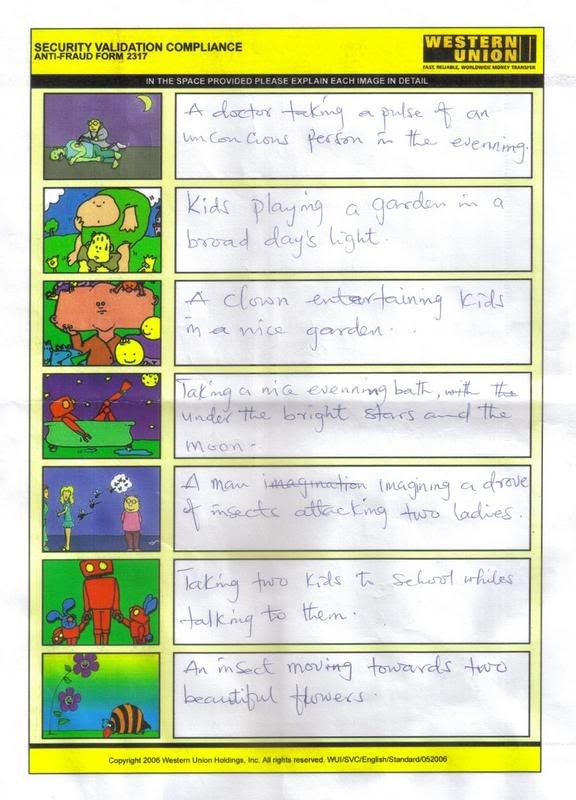 SECURITY VALIDATION COMPLIANCE
ANTI-FRAUD FORM 2317
WESTERN
UNION
FAST, RELIABLE, WORLDWIDE MONEY TRANSFER
IN THE SPACE PROVIDED PLEASE EXPLAIN EACH IMAGE IN DETAIL
A doctor taking a pulse of an
unconcious person in the evenning.
Kids playing a garden in a
broad day's light.
A clown entertaining kids
in a nice garden.
Taking a nice evenning bath, with the
under the bright stars and the
moon.
A man imagination imagining a drove
of insects attacking two ladies.
Taking two kids to school whiles
talking to them.
An insect moving towards two
beautiful flowers.
Copyright 2006 Western Union Holdings, Inc. All rights reserved. WUI/SVC/English/Standard/052006